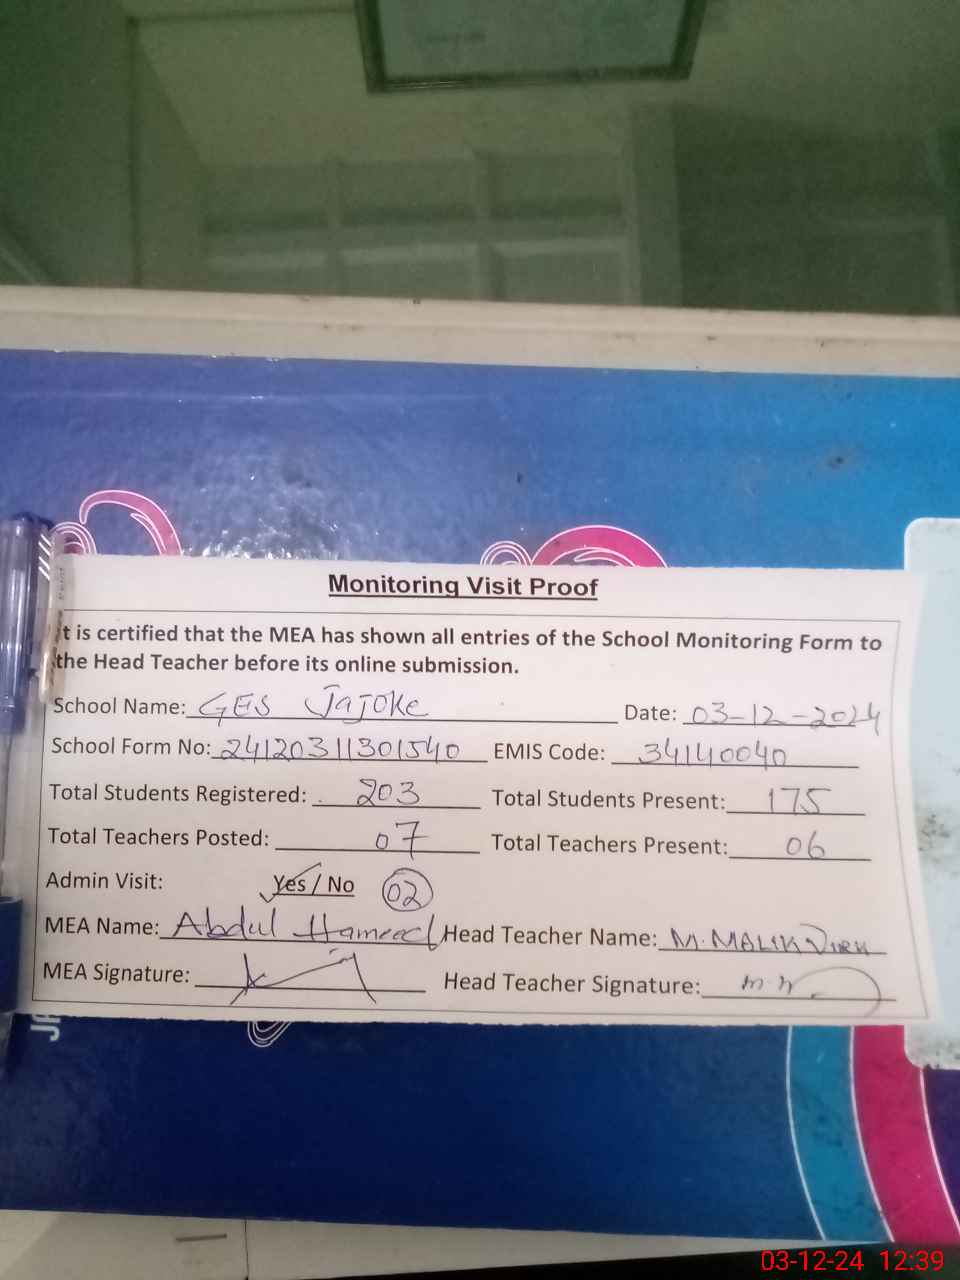 Monitoring Visit Proof
It is certified that the MEA has shown all entries of the School Monitoring Form to
the Head Teacher before its online submission.
School Name: GES Jajoke Date: 03-12-2024
School Form No: 24120311301540 EMIS Code: 34140040
Total Students Registered: 203 Total Students Present: 175
Total Teachers Posted: 07 Total Teachers Present: 06
Admin Visit: Yes / No 02
MEA Name: Abdul Hameed Head Teacher Name: M. MALIK VIRK
MEA Signature: Head Teacher Signature:
03-12-24 12:39